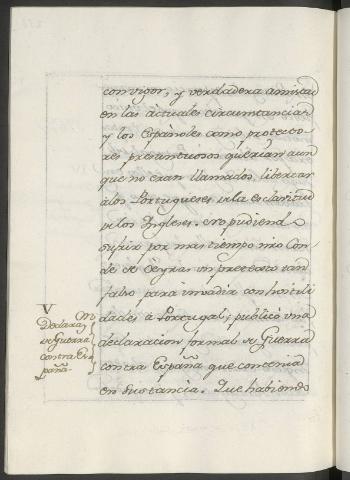 con vigor, y verdadera amistad
en las actuales circunstancias,
y los Españoles como protecto-
res presuntuosos querian aun
que no eran llamados, libertar
à los Portugueses de la esclavitud
de los Ingleses. No pudiendo
sufrir por mas tiempo nro Con-
de de Oeyras un pretexto tan
falso para invadir con hostili-
dades à Portugal; publicó una
declaracion formal de Guerra
contra España que contenia
en sustancia. Que habiendo
V
Declaraⁿ
de Guerra
contra Es-
paña.